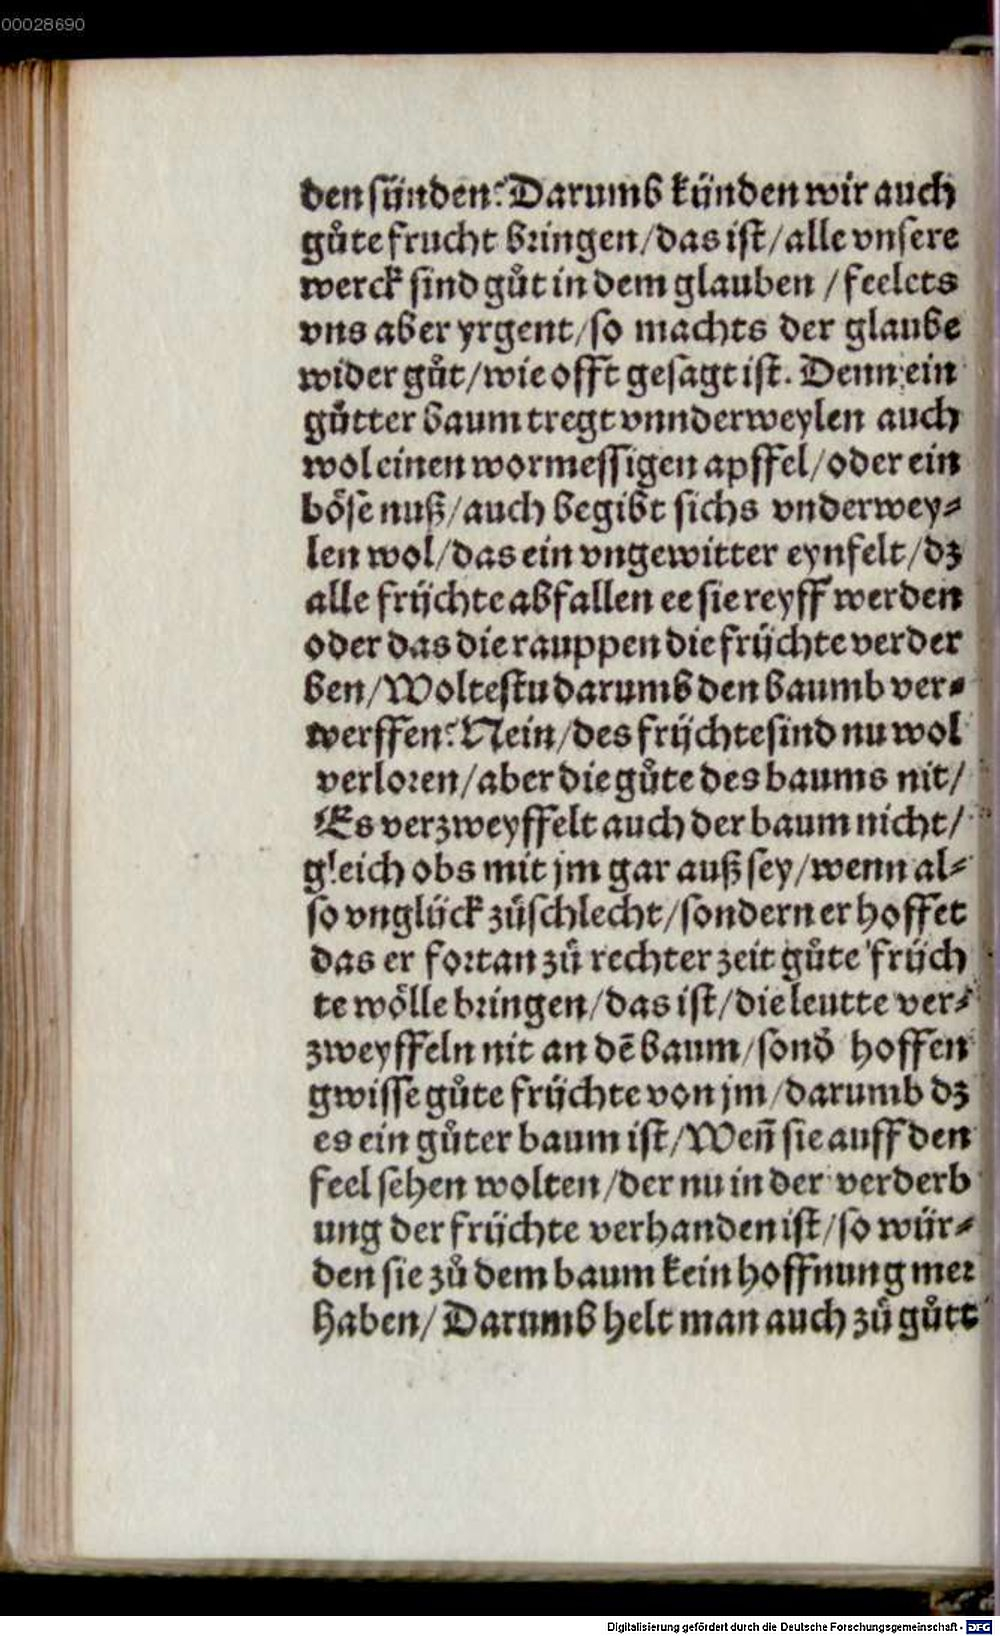 00028690
den sünden? Darumb künden wir auch
gůte frucht bringen/das ist/alle vnsere
werck sind gůt in dem glauben /feelets
vns aber yrgent/so machts der glaube
wider gůt/wie offt gesagt ist. Denn ein
gůtter baum tregt vnnderweylen auch
wol einen wormessigen apffel/oder ein
böse nuß/auch begibt sichs vnderwey⸗
len wol/das ein vngewitter eynfelt/dz
alle früchte abfallen ee sie reyff werden
oder das die rauppen die früchte verder
ben/Woltestu darumb den baumb ver⸗
werffen? Nein/des früchte sind nu wol
verloren/aber die gůte des baums nit/
Es verzweyffelt auch der baum nicht/
gleich obs mit jm gar auß sey/wenn al⸗
so vnglück zůschlecht/sondern er hoffet
das er fortan zů rechter zeit gůte früch
te wölle bringen/das ist/die leutte ver⸗
zweyffeln nit an dē baum/sond̄ hoffen
gwisse gůte früchte von jm/darumb dz
es ein gůter baum ist/Weñ sie auff den
feel sehen wolten/der nu in der verderb
ung der früchte verhanden ist/so wür⸗
den sie zů dem baum kein hoffnung mer
haben/Darumb helt man auch zů gůtt
Digitalisierung gefördert durch die Deutsche Forschungsgemeinschaft - DFG